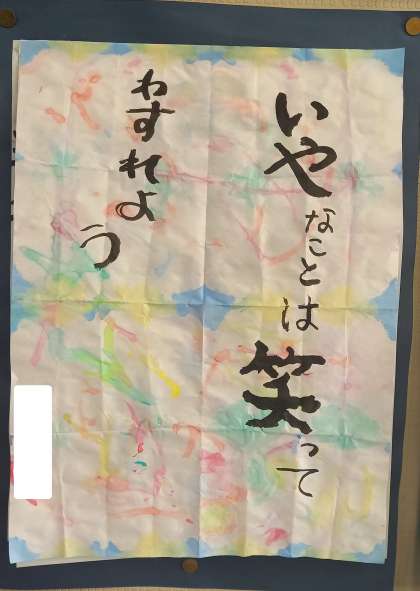 いやなことは笑って
わすれよう